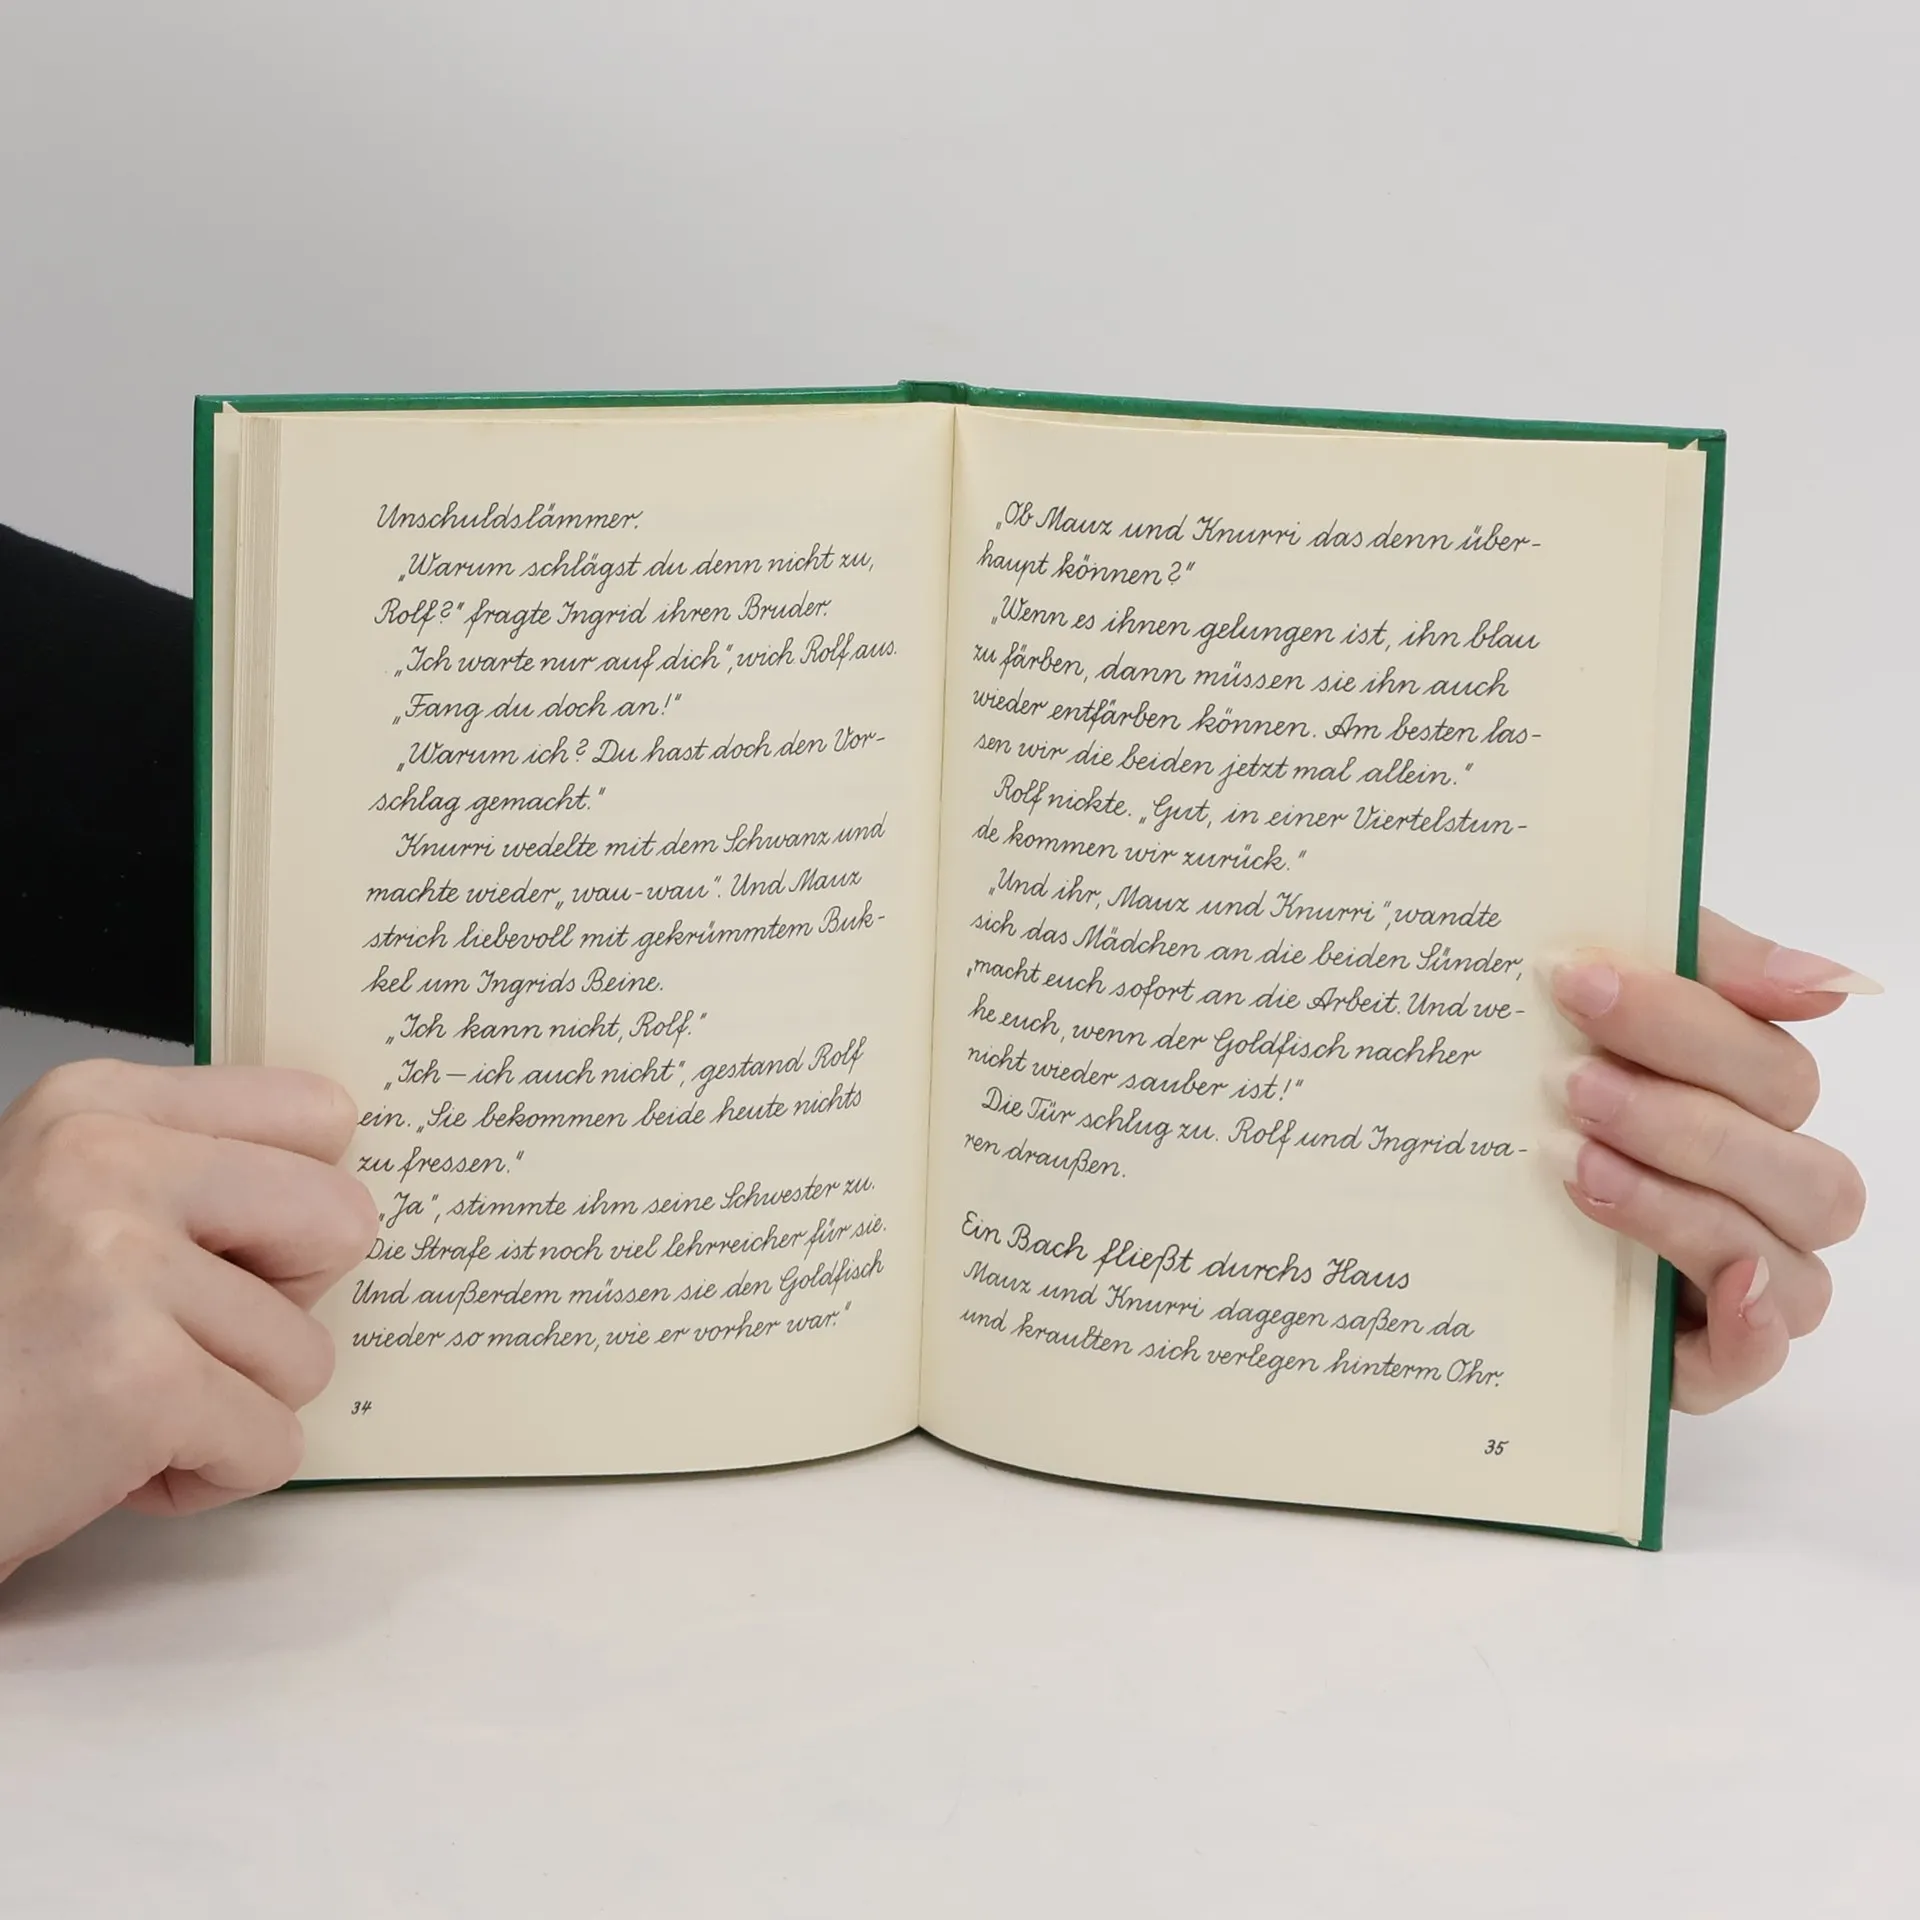 Unschuldslämmer.
„Warum schlägst du denn nicht zu,
Rolf?" fragte Ingrid ihren Bruder.
„Ich warte nur auf dich", wich Rolf aus.
„Fang du doch an!"
„Warum ich? Du hast doch den Vor-
schlag gemacht."
Knurri wedelte mit dem Schwanz und
machte wieder „wau-wau". Und Mauz
strich liebevoll mit gekrümmtem Buk-
kel um Ingrids Beine.
„Ich kann nicht, Rolf."
„Ich – ich auch nicht", gestand Rolf
ein. „Sie bekommen beide heute nichts
zu fressen."
„Ja", stimmte ihm seine Schwester zu.
Die Strafe ist noch viel lehrreicher für sie.
Und außerdem müssen sie den Goldfisch
wieder so machen, wie er vorher war."
34
„Ob Mauz und Knurri das denn über-
haupt können?"
„Wenn es ihnen gelungen ist, ihn blau
zu färben, dann müssen sie ihn auch
wieder entfärben können. Am besten las-
sen wir die beiden jetzt mal allein."
Rolf nickte. „Gut, in einer Viertelstun-
de kommen wir zurück."
„Und ihr, Mauz und Knurri", wandte
sich das Mädchen an die beiden Sünder,
„macht euch sofort an die Arbeit. Und we-
he euch, wenn der Goldfisch nachher
nicht wieder sauber ist!"
Die Tür schlug zu. Rolf und Ingrid wa-
ren draußen.
Ein Bach fließt durchs Haus
Mauz und Knurri dagegen saßen da
und kraulten sich verlegen hinterm Ohr.
35